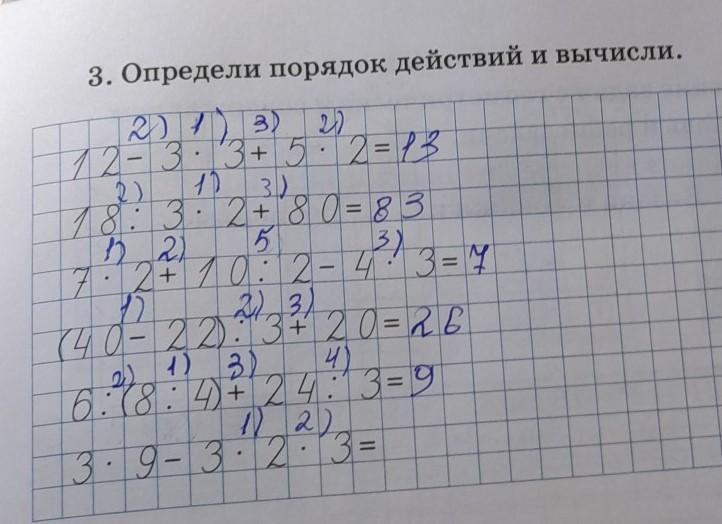 3. Определи порядок действий и вычисли.
2) 1) 3) 2)
12 - 3 · 3 + 5 · 2 = 13
2) 1) 3)
18 : 3 · 2 + 80 = 83
1) 2) 5 3)
7 · 2 + 10 : 2 - 4 · 3 = 7
1) 2) 3)
(40 - 22) : 3 + 20 = 26
2) 1) 3) 4)
6 : (8 : 4) + 24 : 3 = 9
1) 2)
3 · 9 - 3 · 2 · 3 =